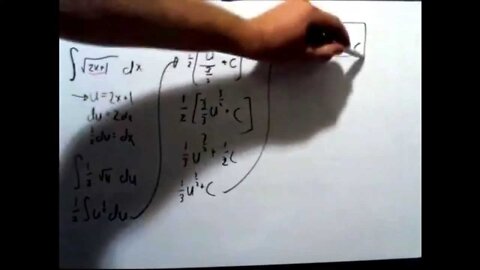 ∫√(2x+1) dx
→ u = 2x+1
du = 2dx
½du = dx
∫ ½ √u du
½ ∫ u^½ du
½ [ u^(3/2) / (3/2) + C ]
½ [ ⅔ u^(3/2) + C ]
⅓ u^(3/2) + ½C
⅓ u^(3/2) + C
C